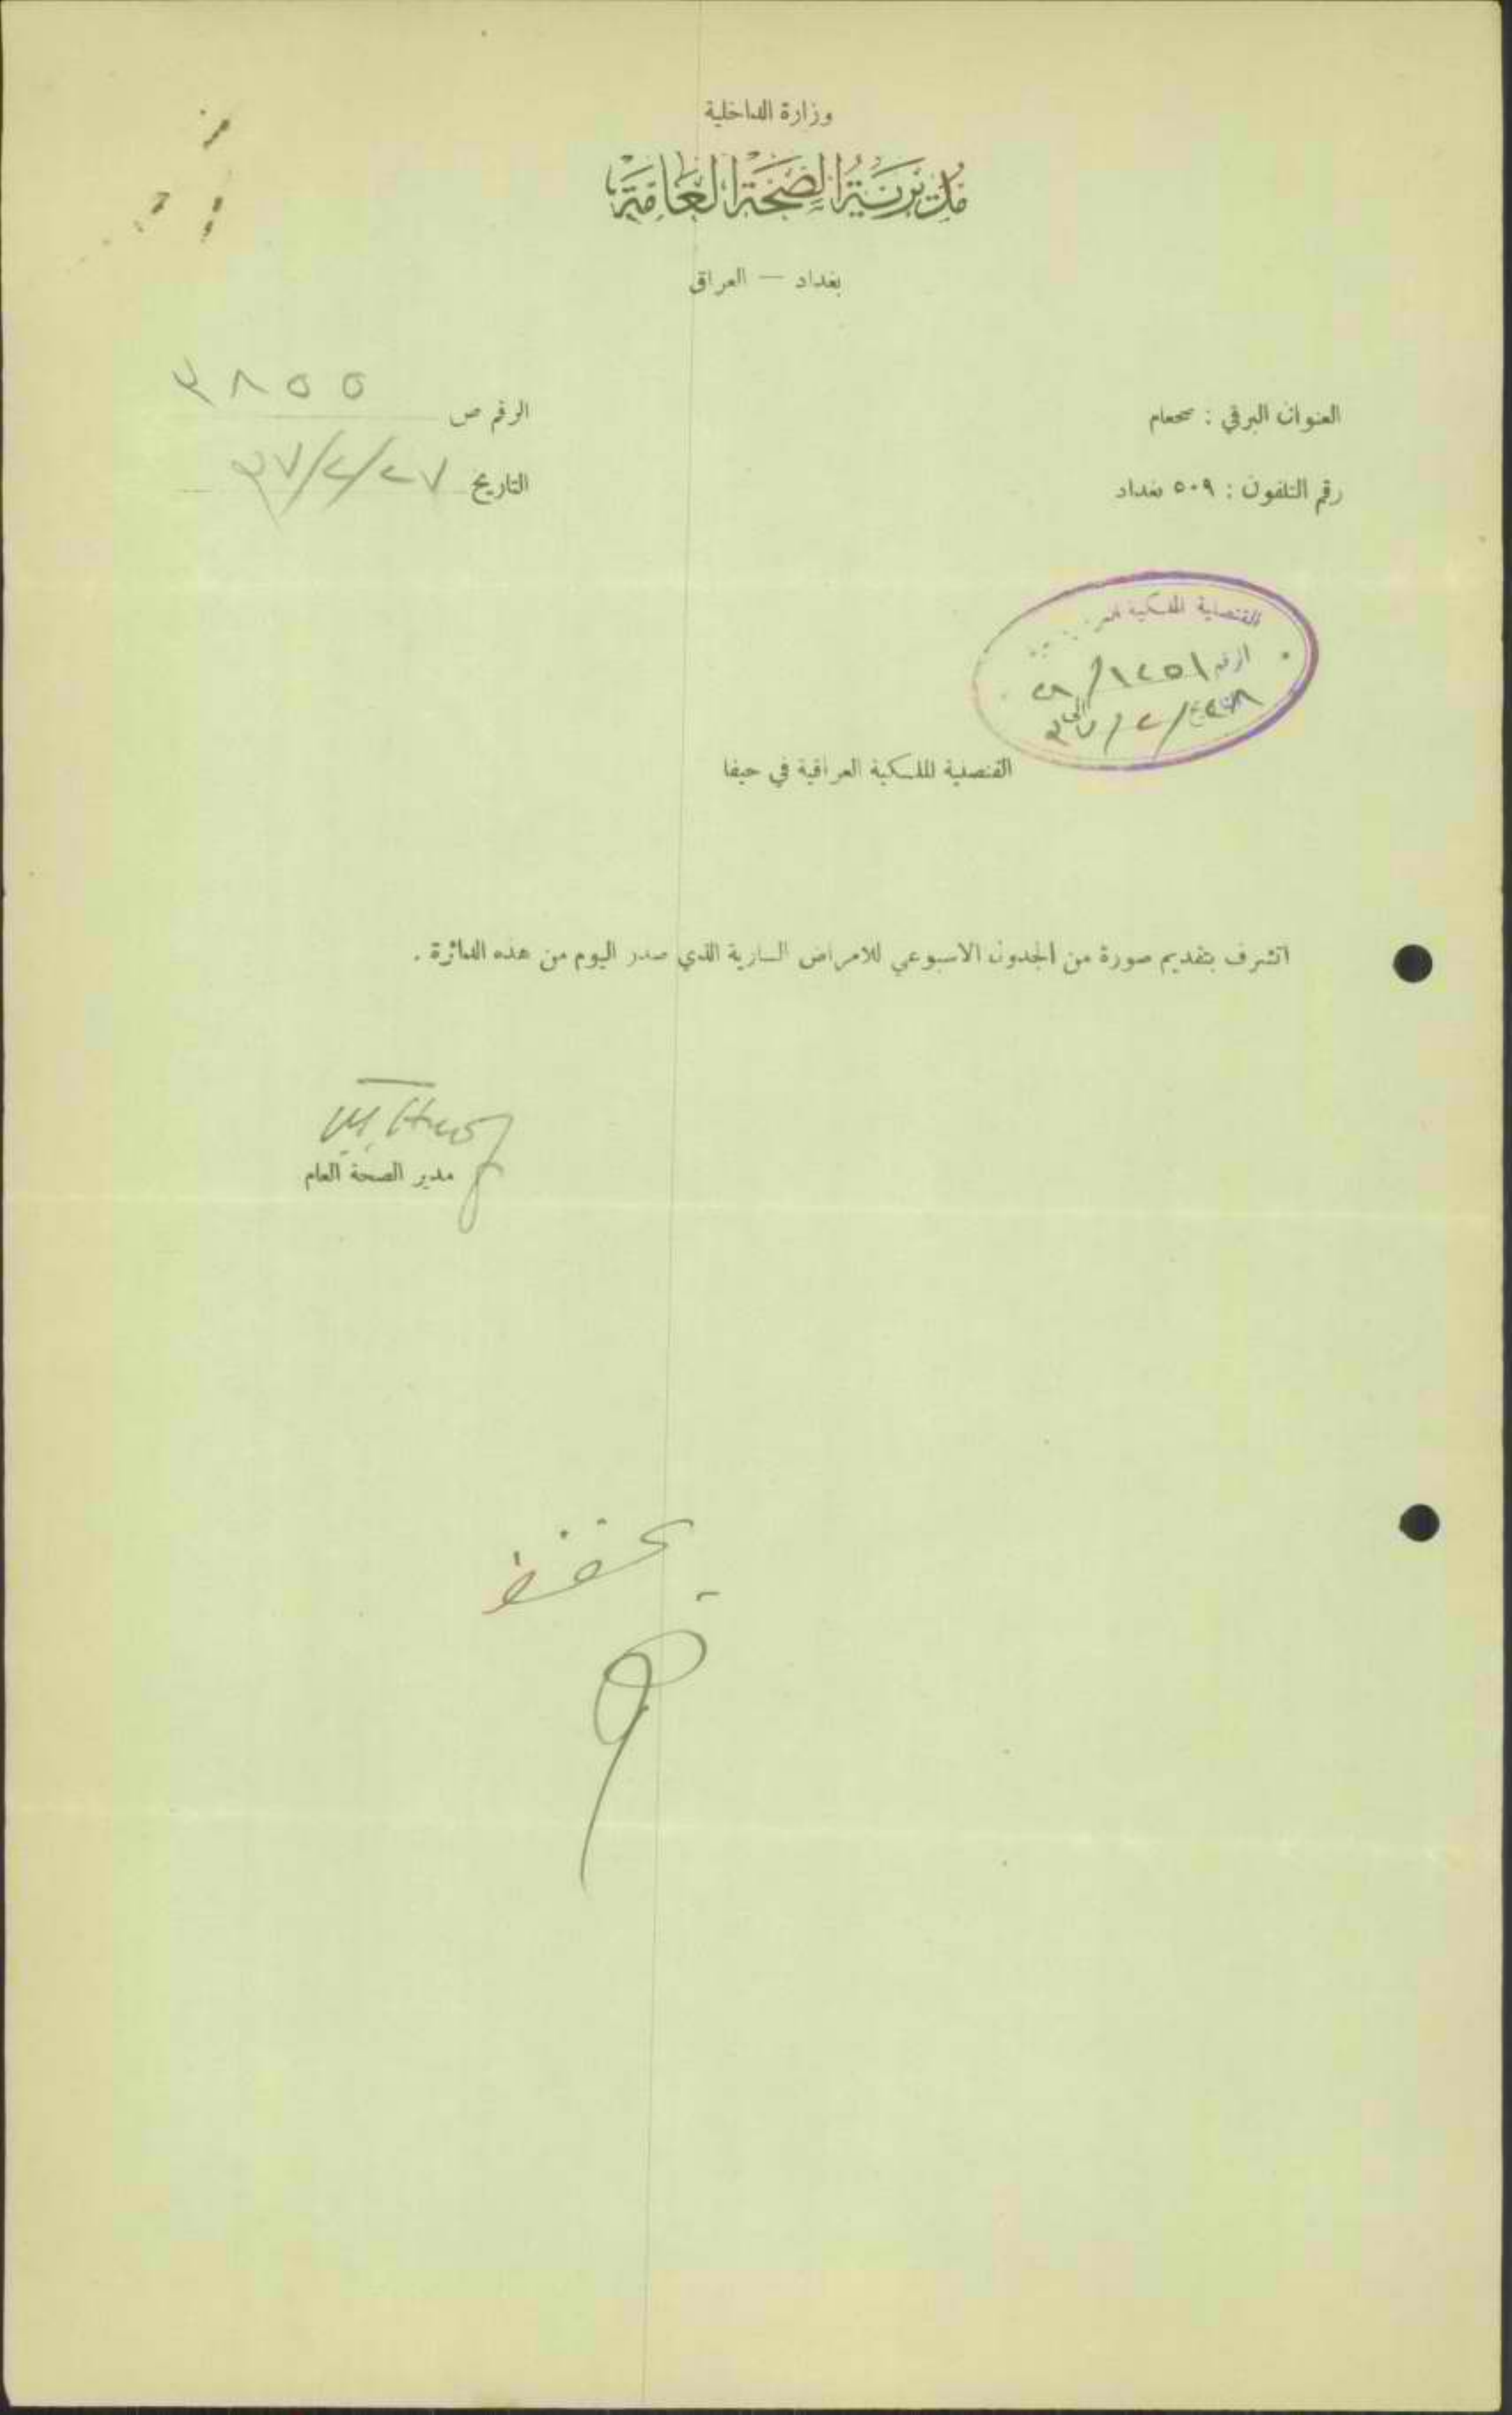 وزارة الداخلية
مديرية الصحة العامة
بغداد — العراق
العنوان البرقي : صحعام
الرقم ص ٣٨٥٥
رقم التلفون : ٥٠٩ بغداد
التاريخ ٣٧/٢/٢٧
القنصلية الملكية
الرقم
التاريخ
القنصلية الملكية العراقية في حيفا
اتشرف بتقديم صورة من الجدول الاسبوعي للامراض السارية الذي صدر اليوم من هذه الدائرة .
مدير الصحة العام
يحفظ